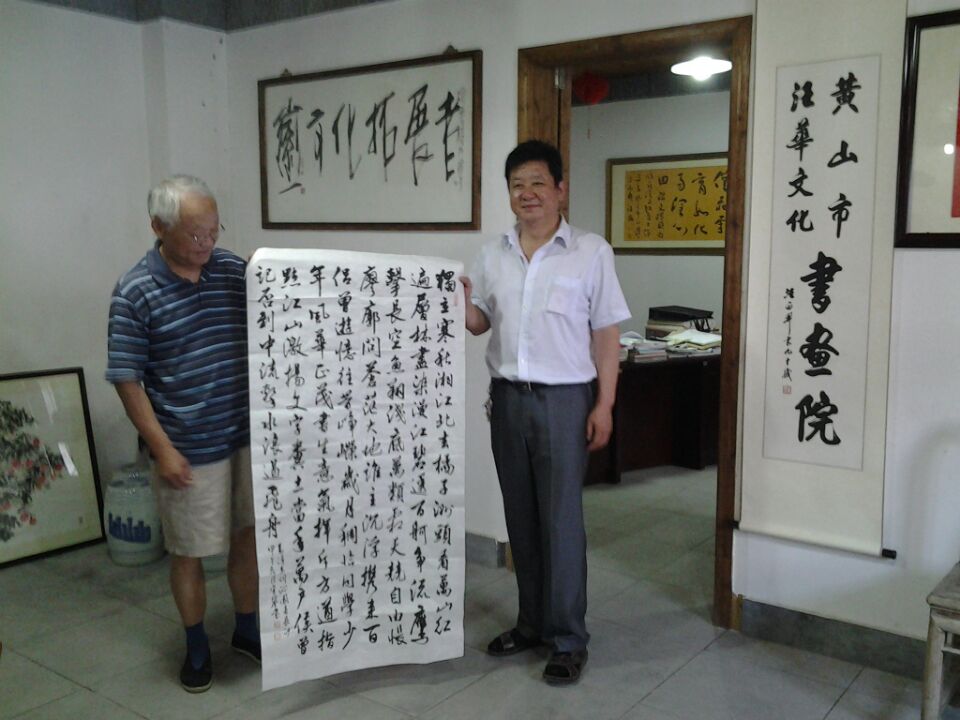 徽文化拓展者
獨立寒秋湘江北去橘子洲頭看萬山紅
遍層林盡染漫江碧透百舸争流鷹
擊長空魚翔淺底萬類霜天競自由悵
廖廓問蒼茫大地誰主沉浮携来百
侣曾遊憶往昔崢嶸歲月稠恰同學少
年風華正茂書生意氣揮斥方遒指
點江山激揚文字糞土當年萬户侯曾
記否到中流擊水浪遏飛舟
黄山市
汪華文化
書畫院